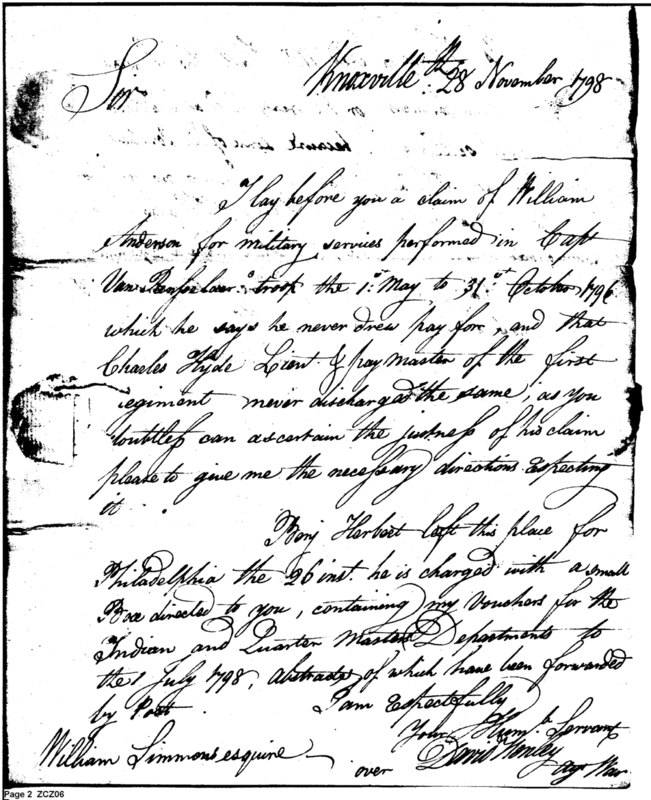 Knoxville 28th November 1798
Sir
I lay before you a claim of William
Anderson for military services performed in Capt
Van Rensselaers troop the 1st May to 31st October 1796
which he says he never drew pay for, and that
Charles Hyde Lieut & paymaster of the first
regiment never discharged the same; as you
doubtless can ascertain the justness of his claim
please to give me the necessary directions respecting
it
Benj Herbert left this place for
Philadelphia the 26 inst. he is charged with a small
Box directed to you, containing my Vouchers for the
Indian and Quarter Masters Departments to
the 1 July 1798, abstracts of which have been forwarded
by Post.
I am respectfully
Your Humble Servant
William Simmons esquire
David Henley
over
Agt War
Page 2 ZCZ06